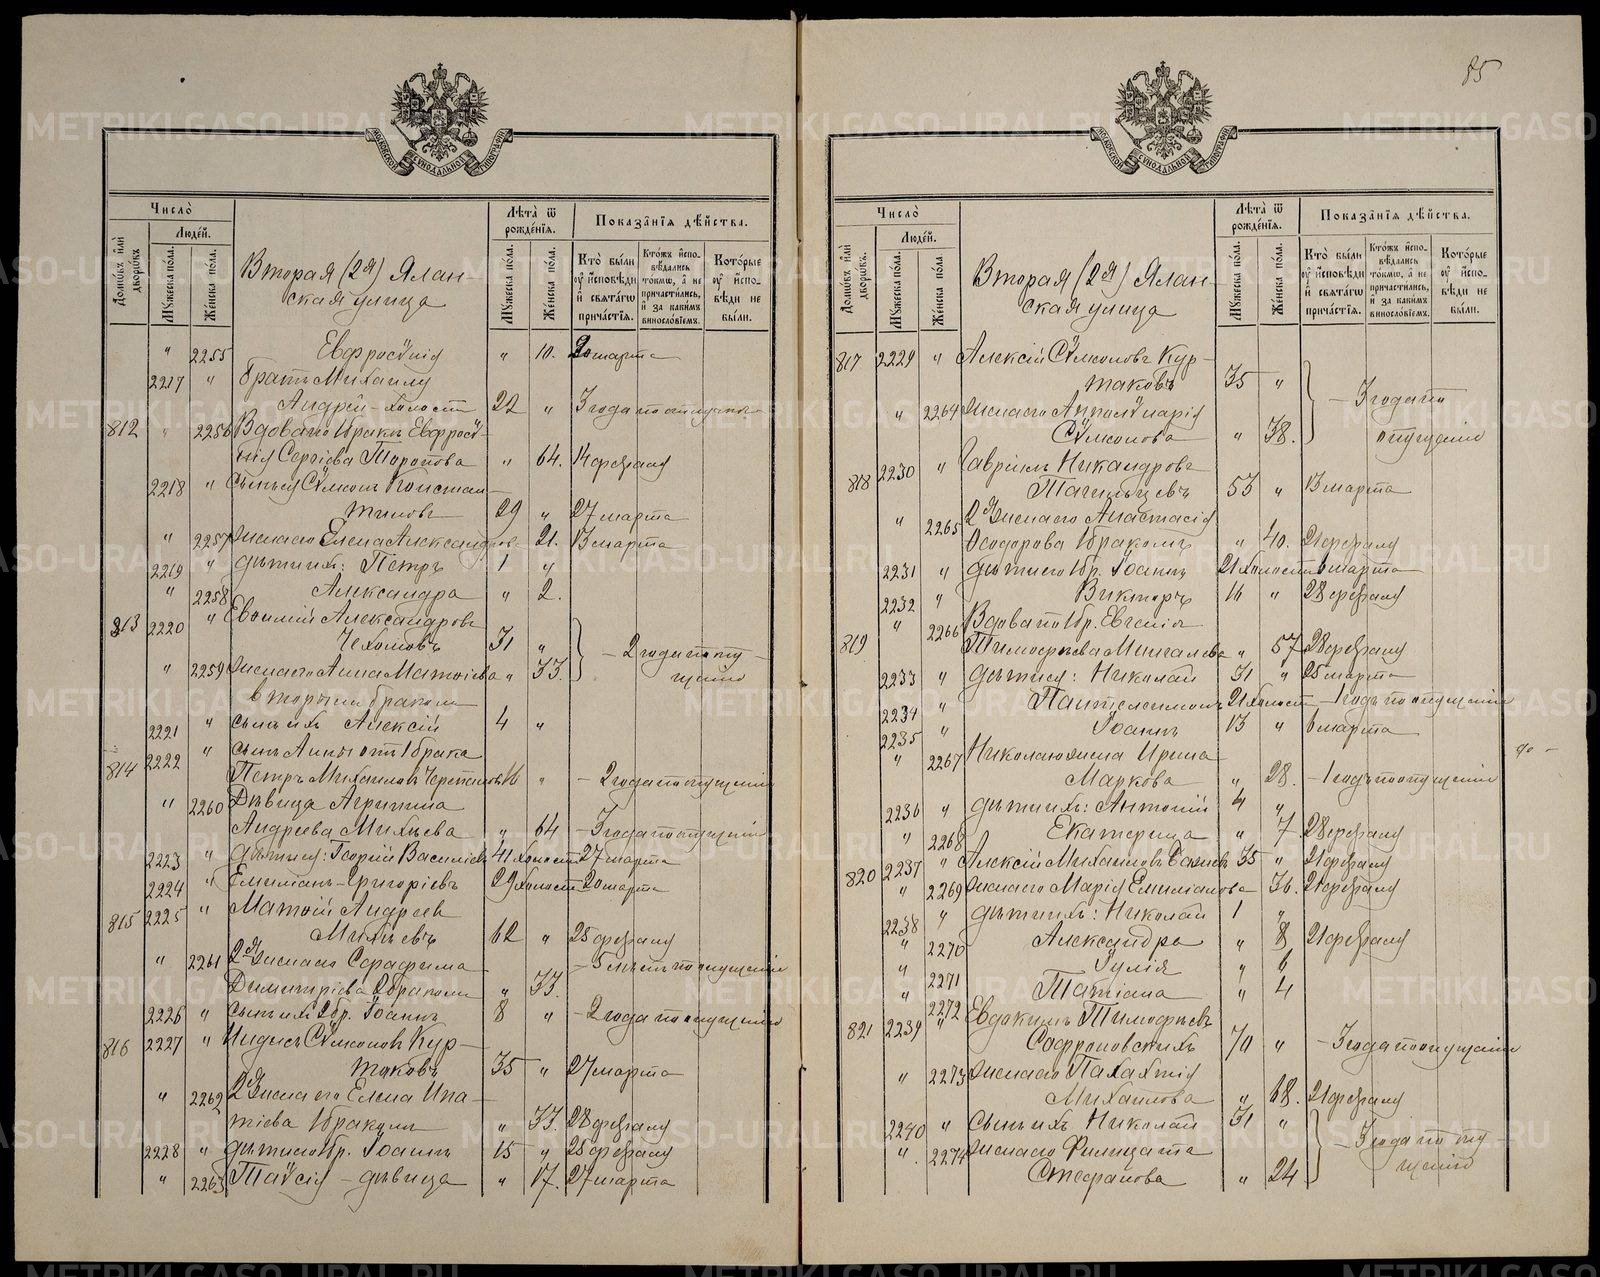 85
Число̀
Людей.
Домѡвъ и҆лѝ дворѡвъ
Мꙋжеска по́ла.
Же́нска по́ла.
Вторая (2я) Ялан-
ская улица
Лѣта̀ ѿ рожде́нїѧ.
Мꙋжеска по́ла.
Же́нска по́ла.
Показа̑нїѧ дѣ́йства.
Кто̀ бы́ли ᲂу҆ и҆сповѣ́ди и҆ свѧта́гѡ прича́стїѧ.
Кто́жъ и҆спо-вѣ́дались то́кмѡ, а҆ не причасти́лись, и҆ за каки́мъ виносло́вїемъ.
Кото́рые ᲂу҆ и҆спо-вѣ́ди не бы́ли.
" 2255 Евфросинія " 10. 20 марта
2217 " братъ Михаилу
Андрей - холостъ 22 " 3 года по опущенію
812 " 2256 Вдова по 1 бракѣ Евфроси-
нія Сергіева Торопова " 64. 14 февраля
2218 " Сынъ ея Симеонъ Констан-
тиновъ 29 " 27 марта
" 2257 Жена его Елена Александров. " 21. 13 марта
2219 " дѣти ихъ: Петръ 1 "
" 2258 Александра " 2.
813 2220 " Евѳимій Александровъ
Чехомовъ 31 "
" 2259 Жена его Анна Матѳіева " 33. - 2 года по опу-
щенію
вторымъ бракомъ
2221 " сынъ ихъ Алексій 4 "
814 2222 " сынъ Анны отъ 1 брака
Петръ Михаиловъ Черепановъ 16 " - 2 года по опущенію
" 2260 Дѣвица Агрипина
Андреева Михѣева " 64 - 3 года по опущенію
2223 " дѣти ея: Георгій Василіевъ 41 холостъ 27 марта
2224 " Емиліанъ Григоріевъ 29 холостъ 20 марта
815 2225 " Матѳій Андреевъ
Михѣевъ 62 " 25 февраля
" 2261 2я Жена его Серафима - 5 лѣтъ по опущенію
Димитріева 2 бракомъ " 33.
2226 " сынъ ихъ 2 бр. Іоаннъ 8 " - 2 года по опущенію
816 2227 " Индисъ Симеоновъ Кур-
таковъ 35 " 27 марта
" 2262 2я Жена его Елена Ипа-
тіева 1 бракомъ " 33. 28 февраля
2228 " дѣти его 1 бр. Іоаннъ 15 " 25 февраля
" 2263 Таисія - дѣвица " 17. 27 марта
Число̀
Людей.
Домѡвъ и҆лѝ дворѡвъ.
Мꙋжеска по́ла.
Же́нска по́ла.
Вторая (2я) Ялан-
ская улица
Лѣта̀ ѿ рожде́нїѧ.
Мꙋжеска по́ла.
Же́нска по́ла.
Показа̑нїѧ дѣ́йства.
Кто̀ бы́ли ᲂу҆ и҆сповѣ́ди и҆ свѧта́гѡ прича́стїѧ.
Кто́жъ и҆спо-вѣ́дались то́кмѡ, а҆ не причасти́лись, и҆ за каки́мъ виносло́вїемъ.
Кото́рые ᲂу҆ и҆спо-вѣ́ди не бы́ли.
817 2229 " Алексій Симеоновъ Кур-
таковъ 35 "
" 2264 Жена его Аполлинарія - 3 года по
Симеонова " 38. опущенію
818 2230 " Гавріилъ Никандровъ
Тагильцевъ 53 " 13 марта
" 2265 2я Жена его Анастасія
Ѳеодорова 1 бракомъ " 40. 21 февраля
2231 " дѣти его 1 бр. Іоаннъ 21 холостъ 6 марта
2232 " Викторъ 16 " 28 февраля
819 " 2266 Вдова по 1 бр. Евгенія
Тимофѣева Мингалева " 57 28 февраля
2233 " дѣти ея: Николай 31 " 25 марта
2234 " Пантелеимонъ 21 холост - 1 годъ по опущенію
2235 " Іоаннъ 13 " 6 марта
" 2267 Николаю жена Ирина
Маркова " 28. - 1 годъ по опущенію
2236 " дѣти ихъ: Антоній 4 "
" 2268 Екатерина " 7 28 февраля
820 2237 " Алексій Михаиловъ 35 " 21 февраля
" 2269 Жена его Марія Емиліанова " 36. 21 февраля
2238 " дѣти ихъ: Николай 1 "
" 2270 Александра " 8 21 февраля
" 2271 Іулія " 6
" 2272 Татіана " 4
821 2239 " Евдокимъ Тимофѣевъ
Софроновскихъ 70 " - 3 года по опущенію
" 2273 Жена его Палахтія
Михаилова " 68. 21 февраля
2240 " сынъ ихъ Николай 31 "
" 2274 Жена его Филицата - 3 года по опу-
щенію
Стефанова " 24